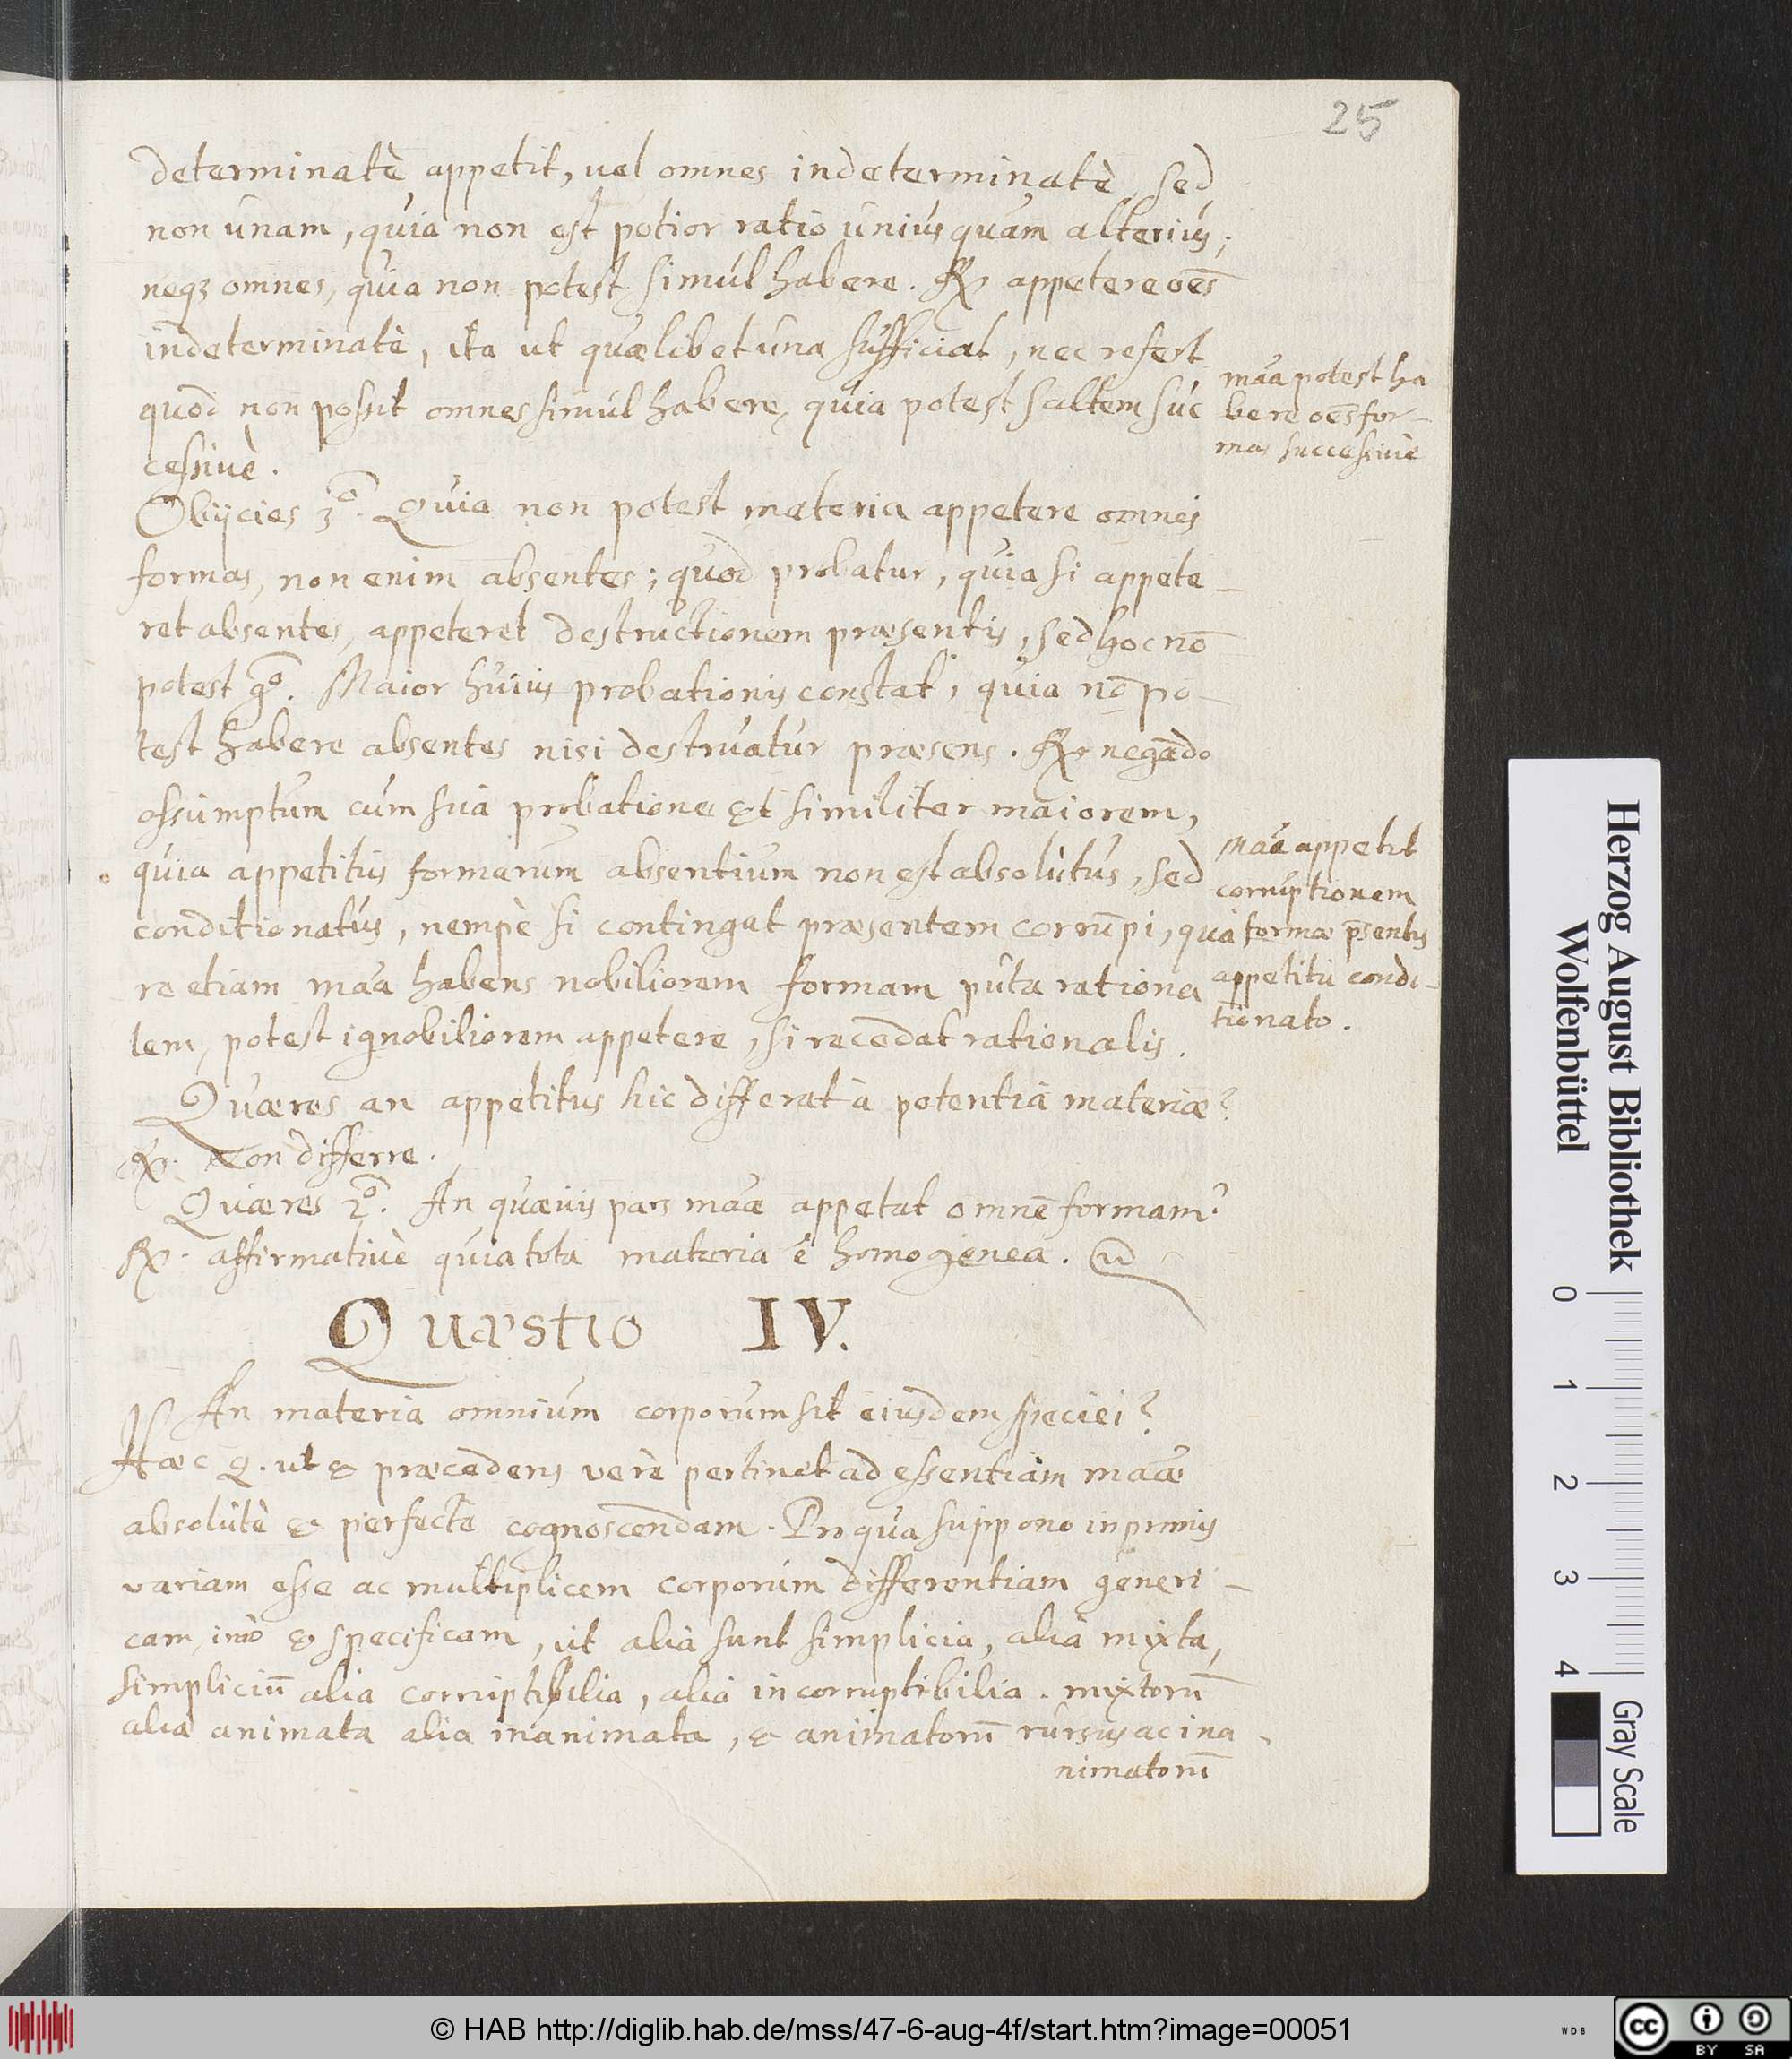 25
determinatè appetit, uel omnes indeterminatè, sed
non unam, quia non est potior ratio unius quam alterius;
neqȝ omnes, quia non potest simul habere. ℞ appetere oēs
indeterminatè, ita ut quælibet una sufficiat, nec refert
quod non possit omnes simul habere, quia potest saltem suc
cessiuè.
maa potest ha
bere oēs for-
mas successiuè
Obijcies 3º. Quia non potest materia appetere omnes
formas, non enim absentes; quod probatur, quia si appete-
ret absentes, appeteret destructionem præsentis, sed hoc nō
potest gº. Maior huius probationis constat, quia nō po-
test habere absentes nisi destruatur præsens. ℞ negādo
assumptum cum sua probatione et similiter maiorem,
quia appetitus formarum absentium non est absolutus, sed
conditionatus, nempè si contingat præsentem corrūpi, qua
re etiam maa habens nobiliorem formam puta rationa
lem, potest ignobiliorem appetere, si recedat rationalis.
maa appetit
corruptionem
formæ p̄sentis
appetitu condi-
tionato.
Quæres an appetitus hic differat à potentia materiæ?
℞. Non differre.
Quæres 2º. An quæuis pars maæ appetat omnē formam?
℞. affirmatiuè quia tota materia ē homogenea.
Quæstio IV.
An materia omnium corporum sit eiusdem speciei?
Hæc q. ut & præcedens verè pertinet ad essentiam maæ
absolutè & perfectè cognoscendam. Pro qua suppono inprimis
variam esse ac multiplicem corporum differentiam generi-
cam, imò & specificam, ut alia sunt simplicia, alia mixta,
simpliciū alia corruptibilia, alia incorruptibilia. mixtorū
alia animata alia inanimata, & animatorū rursus ac ina-
nimatorū
Herzog August Bibliothek
Wolfenbüttel
0 1 2 3 4
Gray Scale
© HAB http://diglib.hab.de/mss/47-6-aug-4f/start.htm?image=00051
WDB
cc BY SA